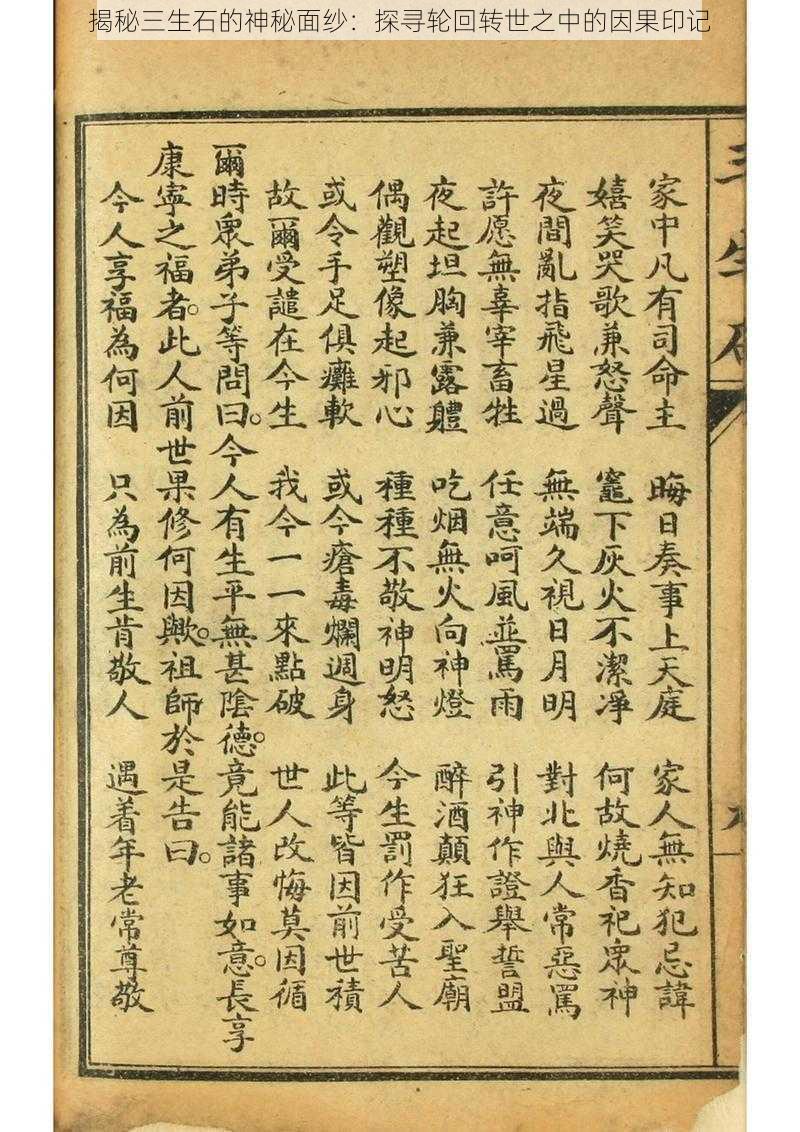 揭秘三生石的神秘面纱：探寻轮回转世之中的因果印记
三生石
家中凡有司命主 晦日奏事上天庭 家人無知犯忌諱
嬉笑哭歌兼怒聲 竈下灰火不潔凈 何故燒香祀眾神
夜間亂指飛星過 無端久視日月明 對北與人常惡罵
許愿無辜宰畜牲 任意呵風並罵雨 引神作證舉誓盟
夜起坦胸兼露軆 吃烟無火向神燈 醉酒顛狂入聖廟
偶觀塑像起邪心 種種不敬神明怒 今生罰作受苦人
或令手足俱癱軟 或令瘡毒爛週身 此等皆因前世積
故爾受譴在今生 我今一一來點破 世人改悔莫因循
爾時眾弟子等問曰。今人有生平無甚陰德。竟能諸事如意。長享
康寧之福者。此人前世果修何因歟。祖師於是告曰。
今人享福為何因 只為前生肯敬人 遇着年老常尊敬